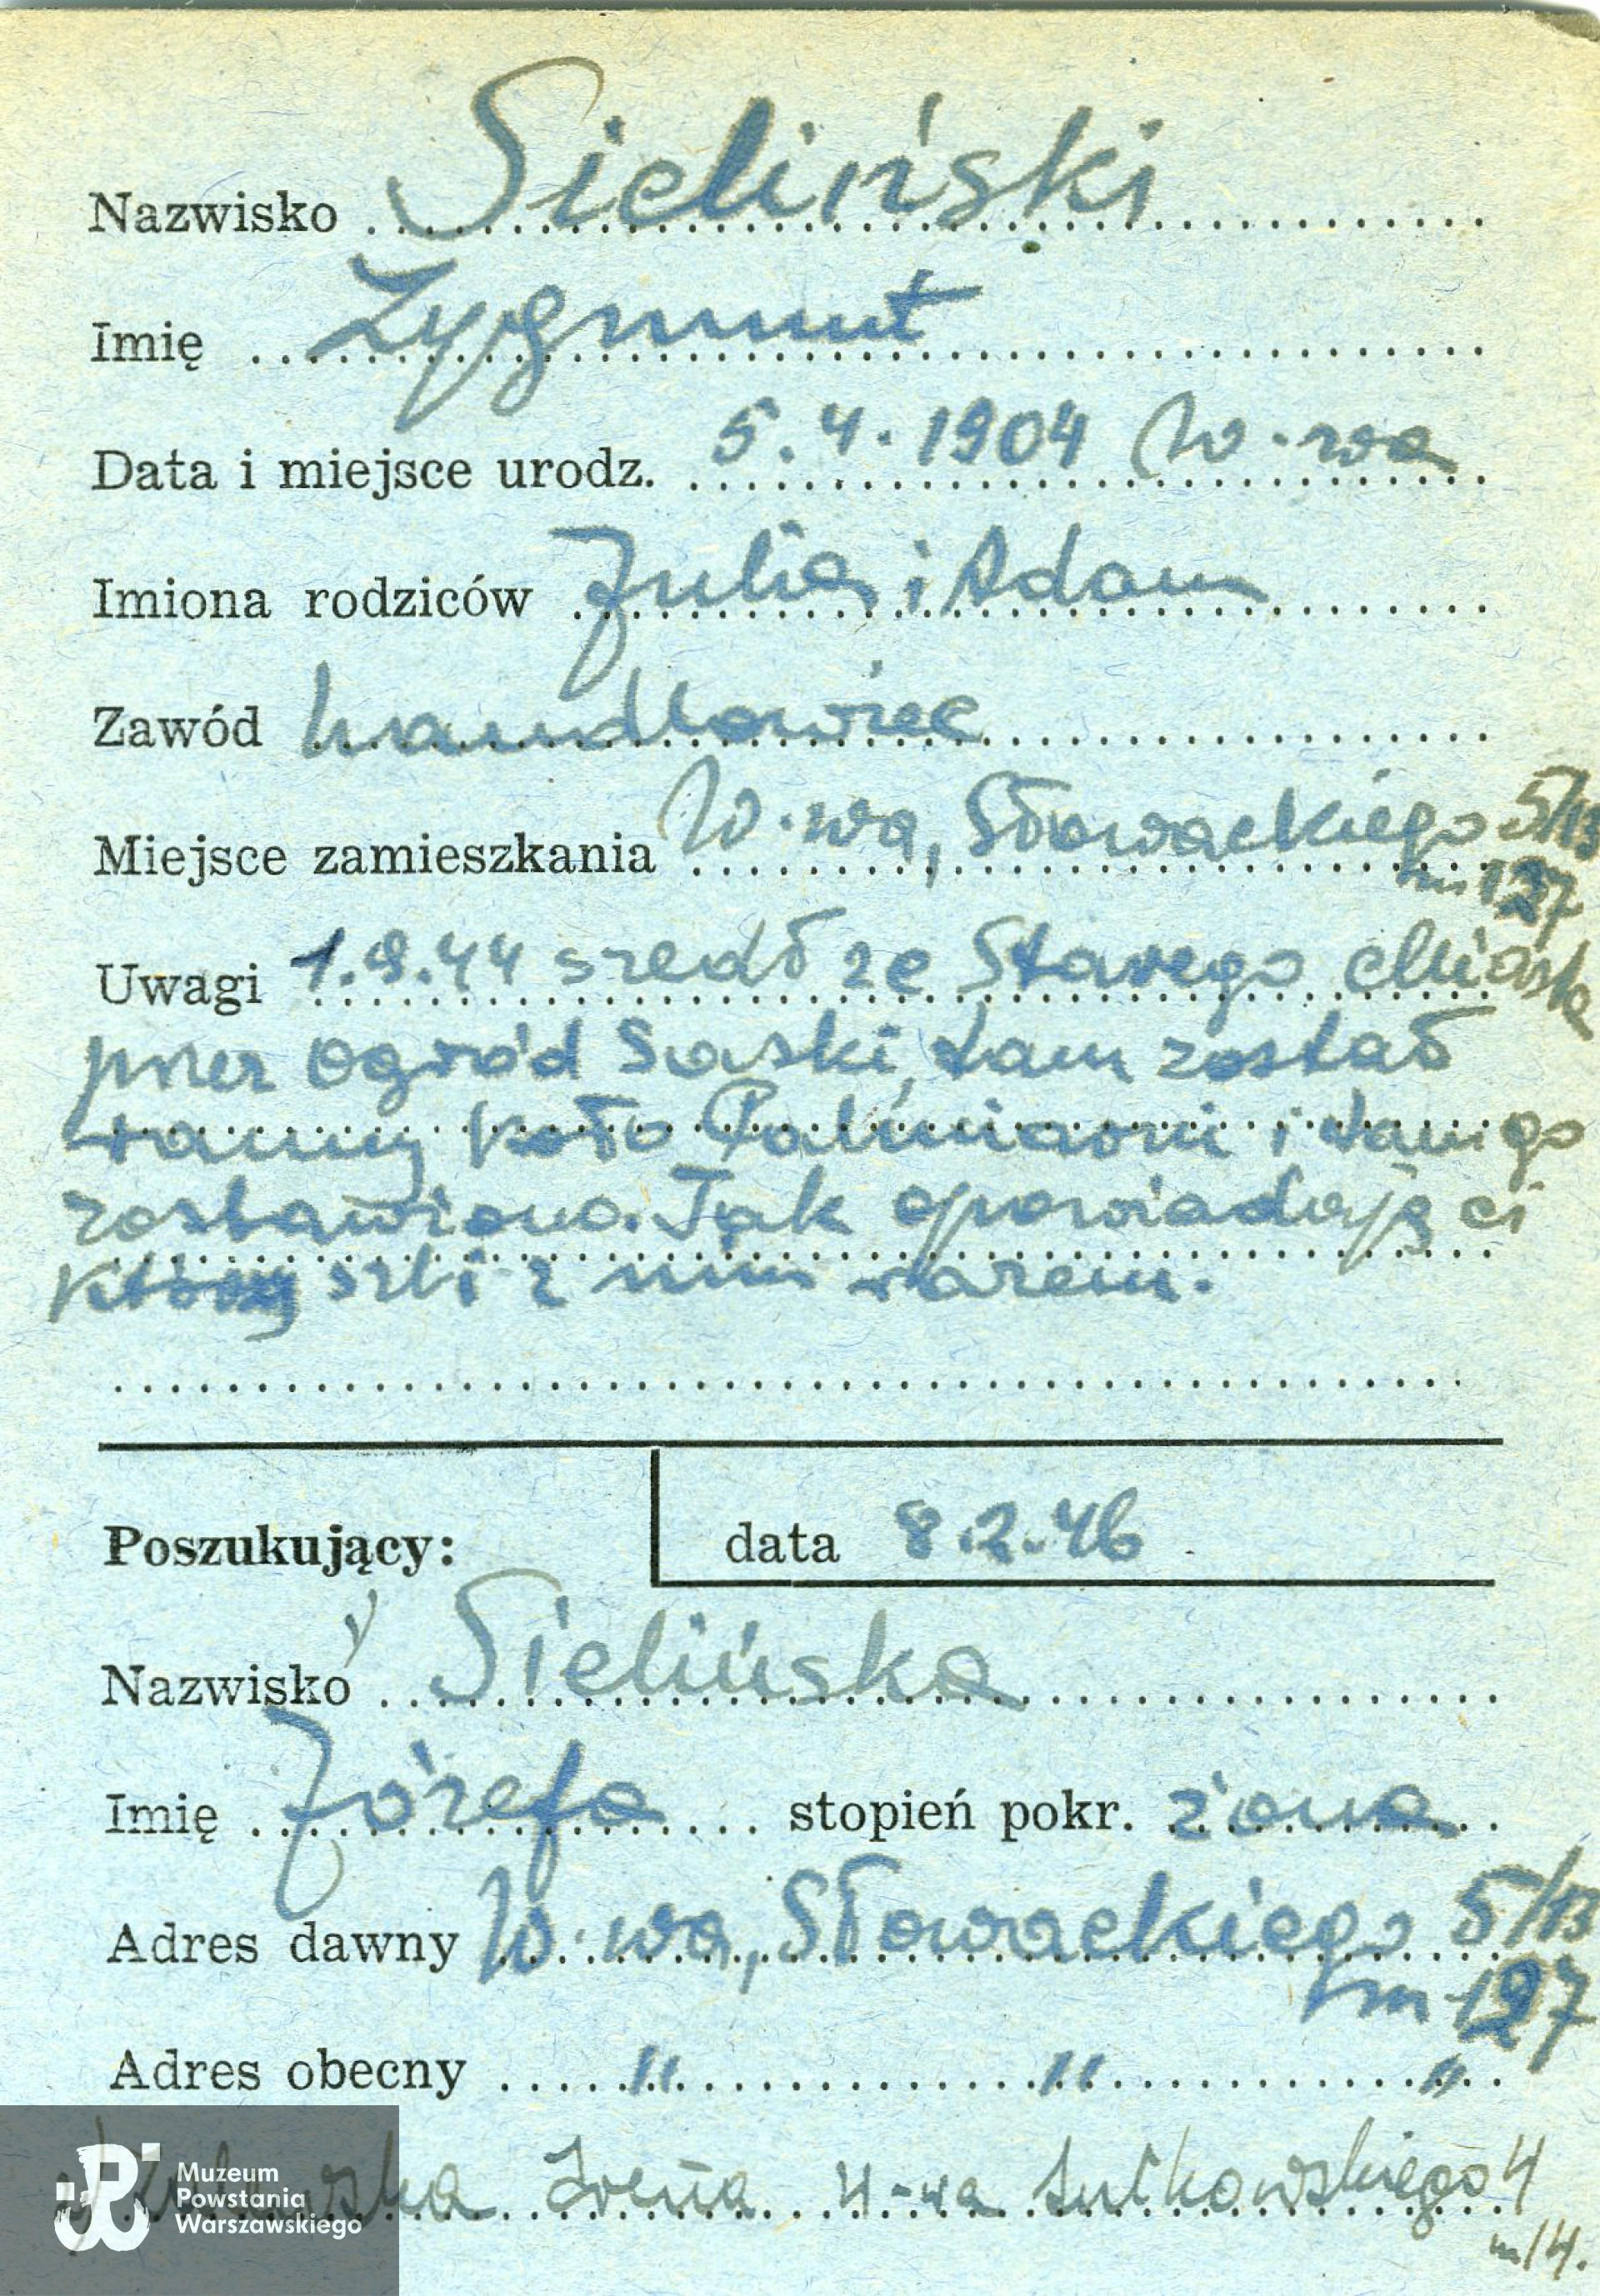 Nazwisko Sieliński
Imię Zygmunt
Data i miejsce urodz. 5.4.1904 W-wa
Imiona rodziców Julia i Adam
Zawód handlowiec
Miejsce zamieszkania W-wa, Słowackiego 5/13
m 127
Uwagi 1.9.44 szedł ze Starego Miasta
przez Ogród Saski, tam został
ranny koło Palmiarni i tam go
zostawiono. Jak opowiadają ci
którzy szli z nim razem.
Poszukujący: data 8.2.46
Nazwisko Sielińska
Imię Józefa stopień pokr. żona
Adres dawny W-wa, Słowackiego 5/13
m 127
Adres obecny " " "
Irena W-wa Sułkowskiego 4
m 14.
Muzeum
Powstania
Warszawskiego